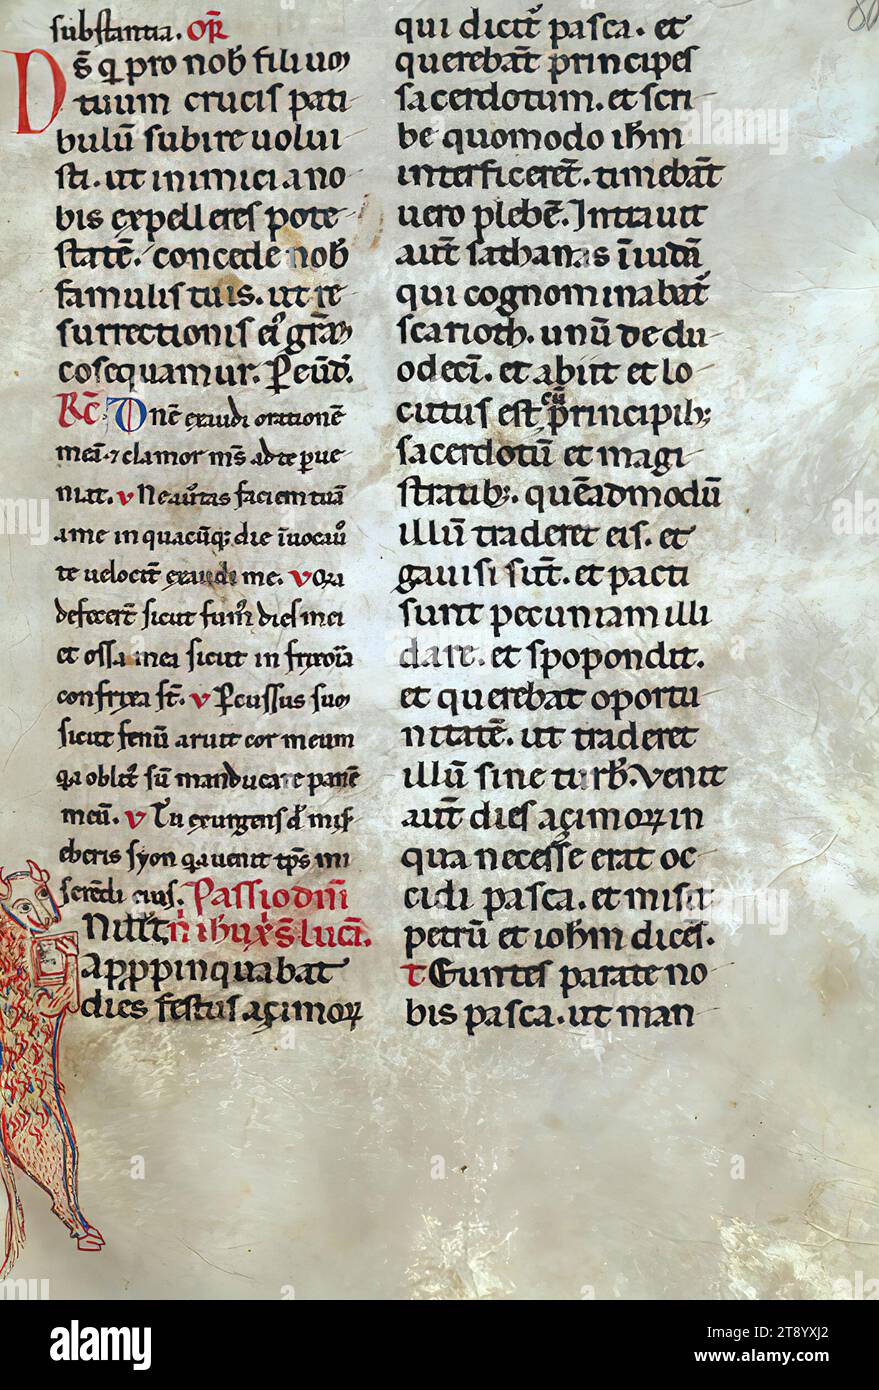 substantia. Or̄
Ds̄ q̇ pro nob̄ filiuꝫ
tuum crucis pati
bulū subire uolui
sti. ut inimici a no
bis expelleres pote
statē. concede nob̄
famulis tuis. ut re
surrectionis ei᷒ grāꝫ
cōsequamur. P eūd̄.
R̄c̄ Dn̄e exaudi orationē
meā. ⁊ clamor ms̄ ad te ꝑue
niat. v Ne au̾tas faciem tuā
a me in quacūq; die īuocau̾o
te uelocit̾ exaudi me. v Q̄a
defecer̄t sicut fum᷒ dies mei
et ossa mea sicut in frixoīa
confrixa st̄. v Percussus suꝫ
sicut fenū aruit cor meum
q̄a oblit᷒ sū manducare panē
meū. v Tu exurgens dn̄e mis̄
eberis syon q̄a uenit tp̄s mi
serēdi eius. Passio dn̄i
n̄i ihu xp̄i s̄ lucā.
In ill̄ t̄.
Appropinquabat
dies festus açimoꝝ
qui dicit᷒ pasca. et
querebāt principes
sacerdotum. et scri
be quomodo ih̄m
interficerēt. timebāt
uero plebē. Intrauit
aūt sathanas ī iudā
qui cognominabat᷒
scarioth. unū de du
odecī. et abiit et lo
cutus est cū principib;
sacerdotū et magi
stratib;. quēadmodū
illū traderet eis. et
gauisi sūt. et pacti
sunt pecuniam illi
dare. et spopondit.
et querebat oportu
nitatē. ut traderet
illū sine turb̄. Venit
aūt dies açimoꝝ in
qua necesse erat oc
cidi pasca. et misit
petrū et ioh̄m dicēs.
t Euntes parate no
bis pasca. ut man
alamy
Image ID: 2T8YXJ2
www.alamy.com